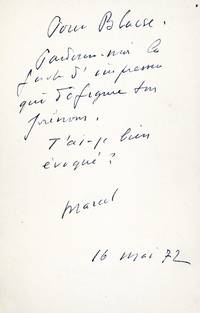 Pour Blaise.
Pardonne-moi la
faute d'impression
qui défigure ton
prénom.
T'ai-je bien
évoqué ?
Marcel
16 mai 72